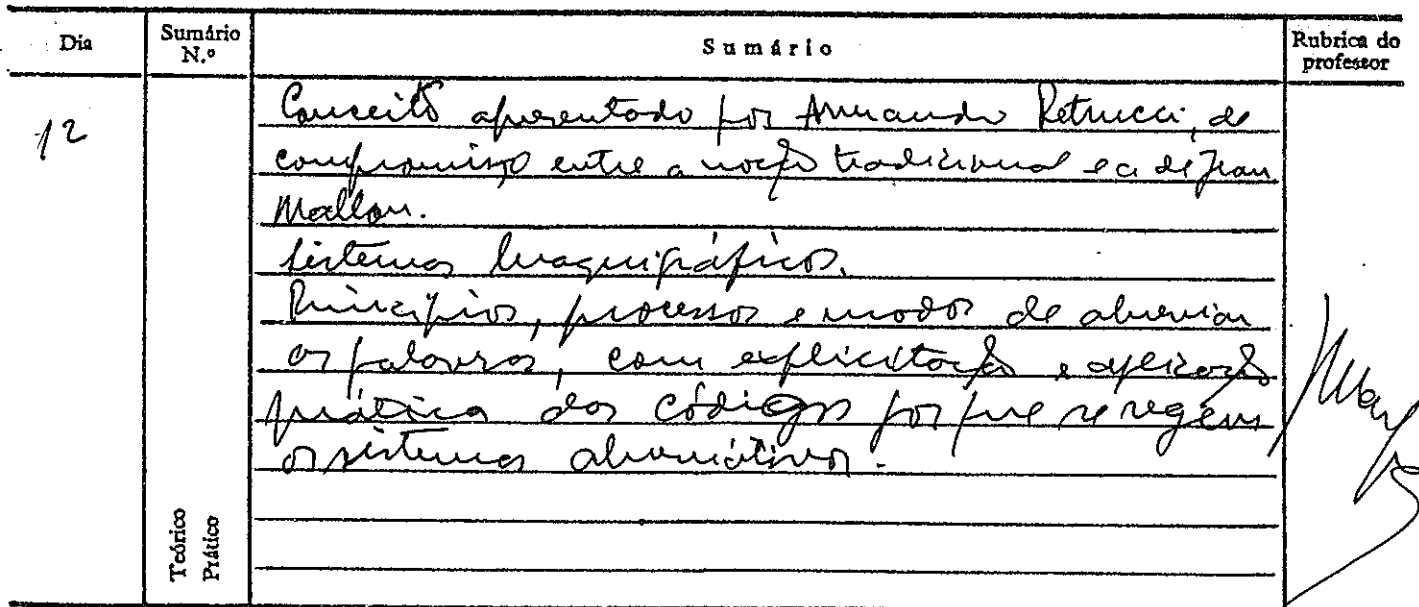 Dia
Sumário N.º
Sumário
Rubrica do professor
12
Conceito apresentado por Armando Petrucci, de
compromisso entre a noção tradicional e a de Jean
Mallon.
Sistemas braquigráficos.
Princípios, processos e modos de abreviar
as palavras, com explicitação e aplicação
prática dos códigos por que se regem
os sistemas abreviativos.
Teórico
Prático